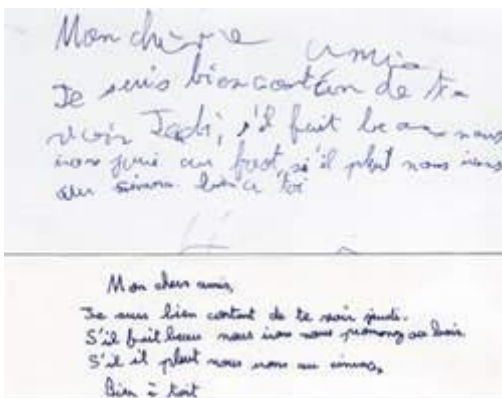 Mon chère amie
Je suis bien contan de te
voir Jedi, s'il fait beau nous
irons au si il pleut nous irons
au bien a toi
Mon chers amis,
Je suis bien content de te voir jeudi.
S'il fait beau nous irons nous promenez au bois.
S'il il pleut nous irons au cinéma,
Bien à toit